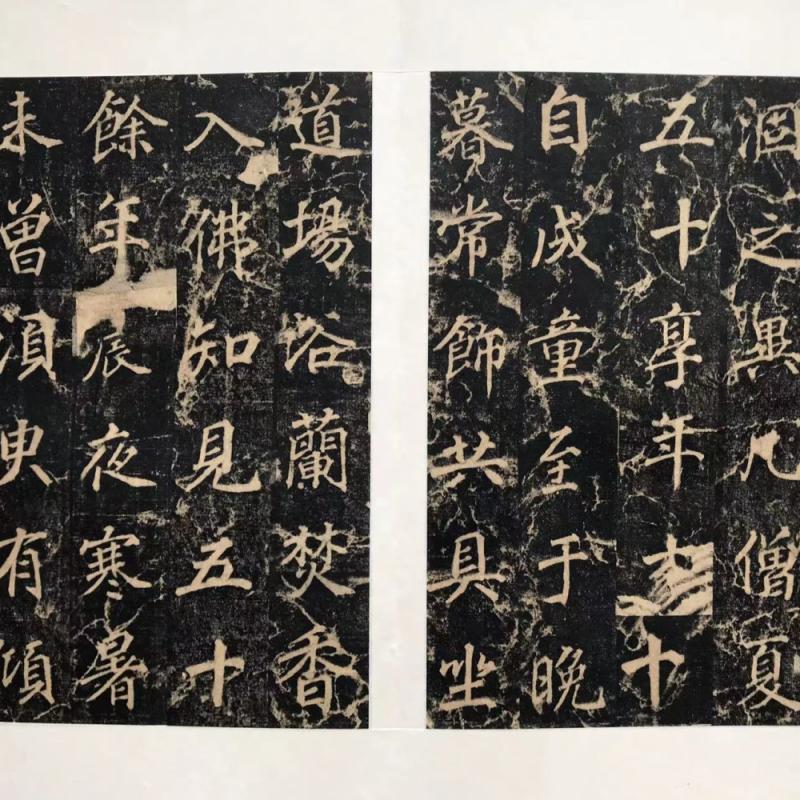 涸之異凡僧夏
五十享年十
自成童至于晚
暮常飾共具坐
道場浴蘭焚香
入佛知見五十
餘年辰夜寒暑
未曾須臾有傾